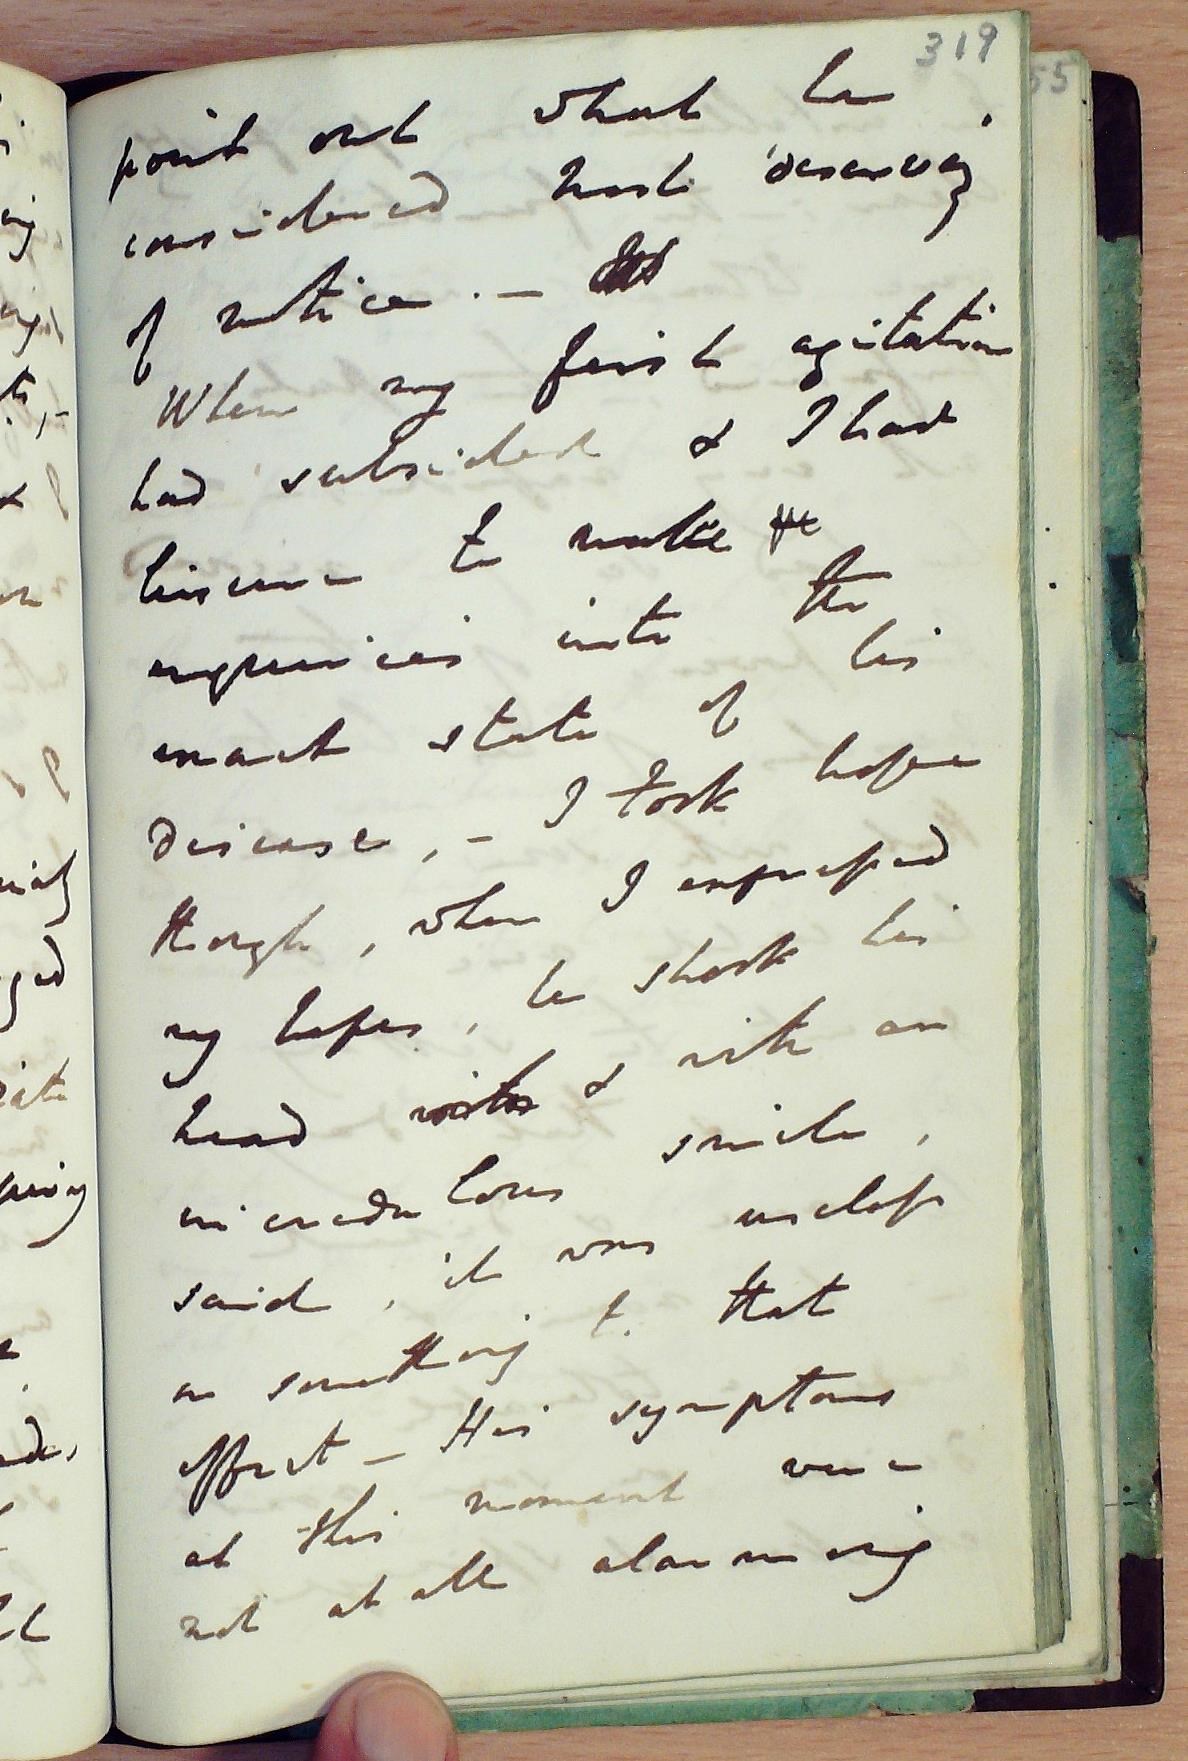 319
point out what he
considered most deserving
of notice. —
When my first agitation
had subsided & I had
leisure to make
enquiries into the
exact state of his
disease, — I took hope
though, when I expressed
my hopes, he shook his
head with & with an
incredulous smile,
said, it was useless
or something to that
effect — His symptoms
at this moment were
not at all alarming
55